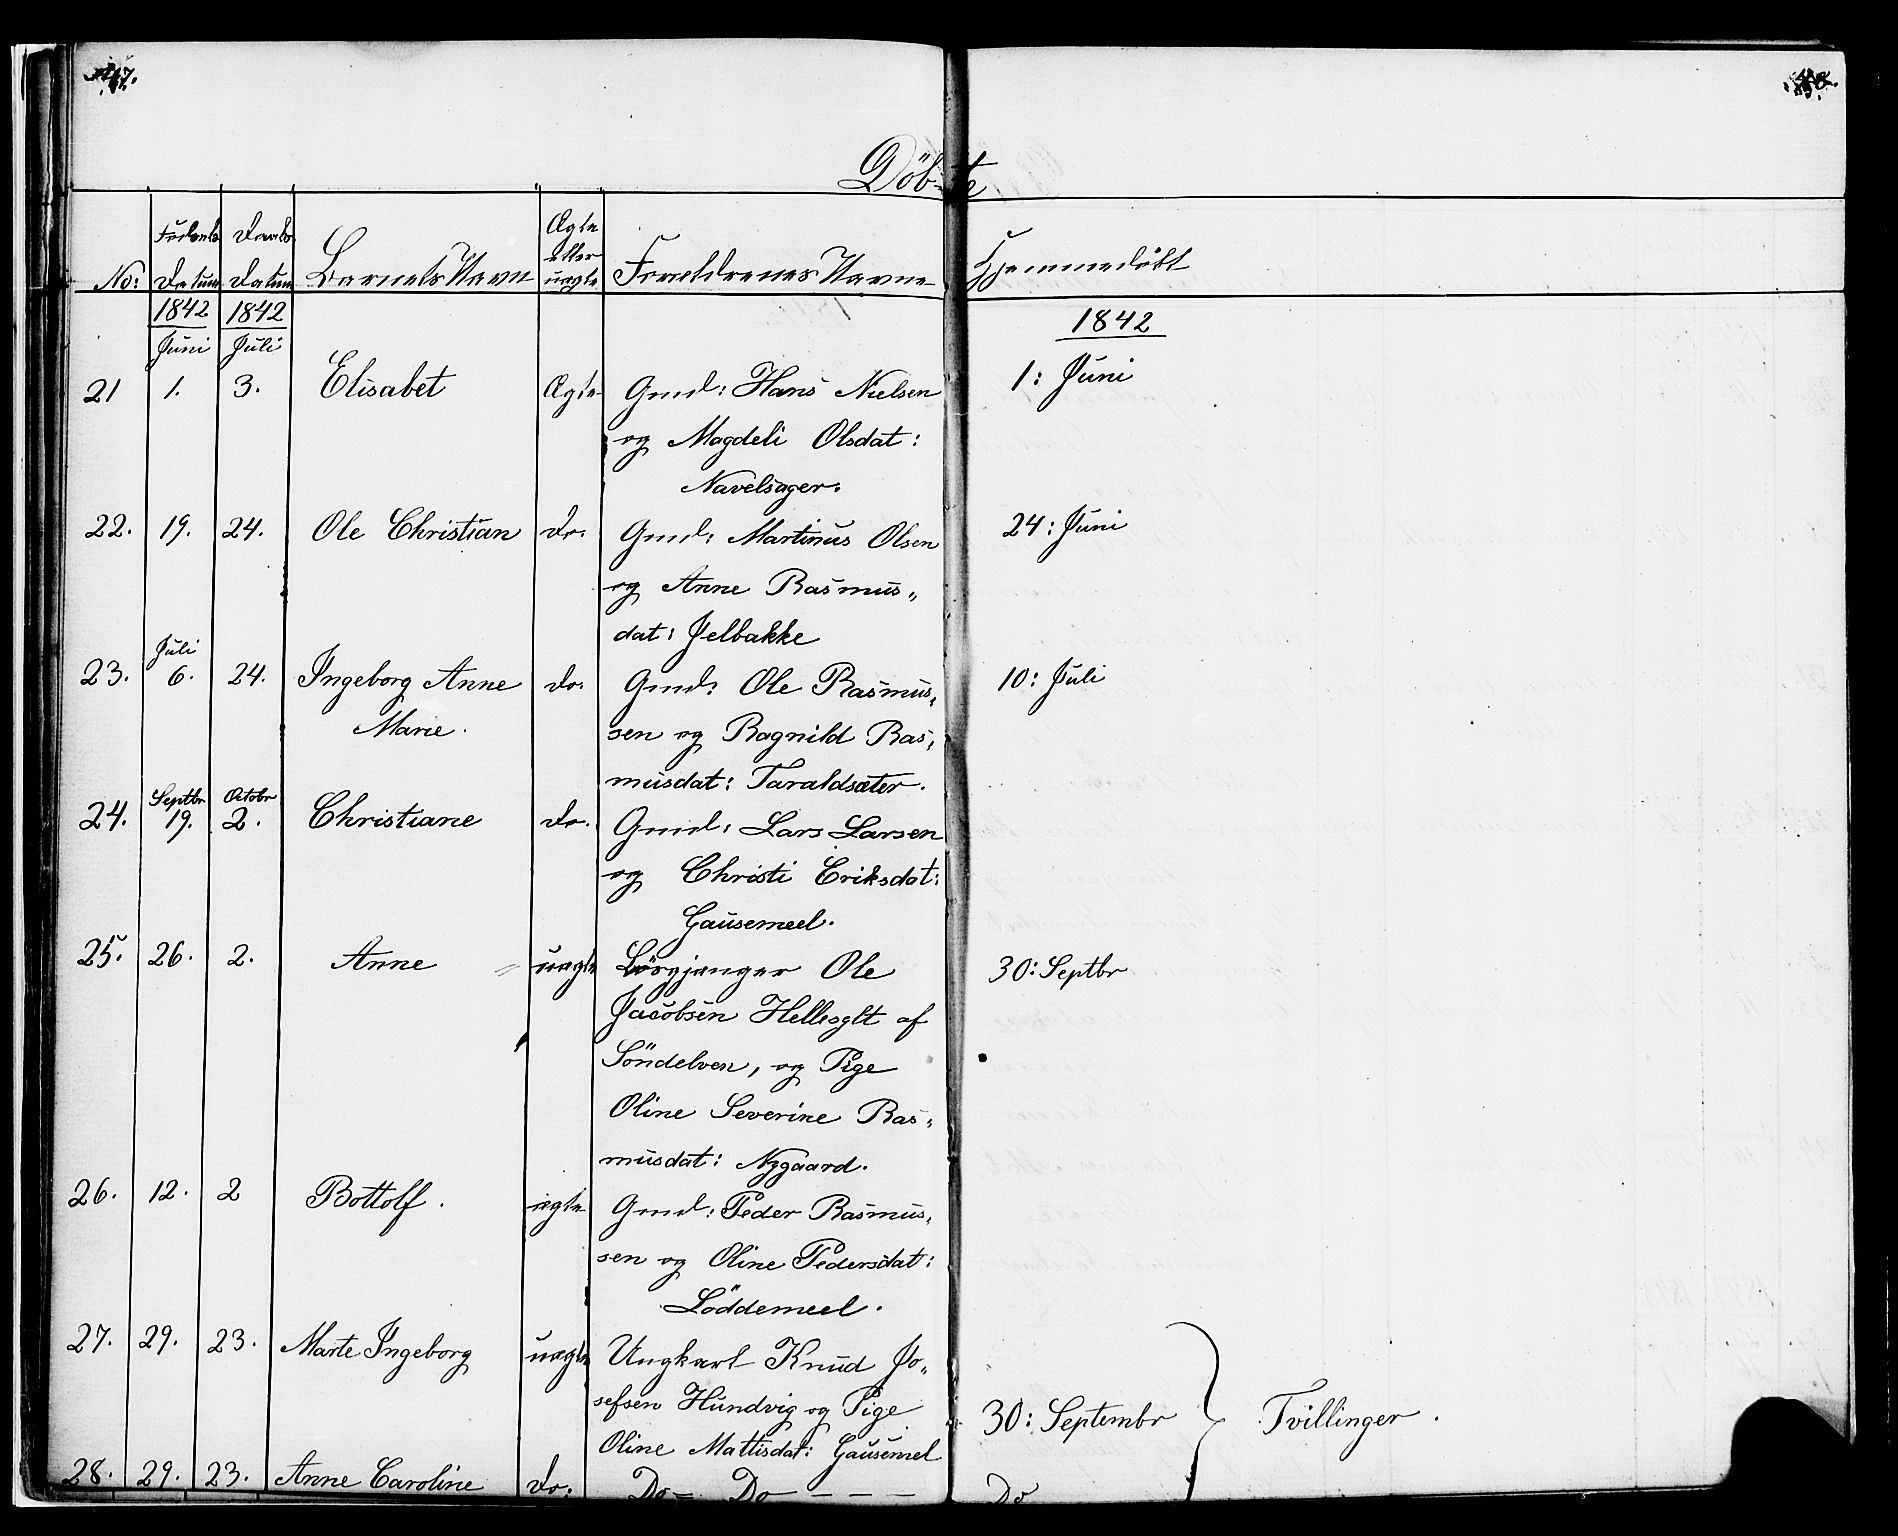 Döbte
No: Födsels Datum Daabs Datum Barnets Navn Ægte eller uægte Forældrenes Navne Hjemmedöbt
1842 1842 1842
Juni Juli
21 1. 3. Elisabet Ægte Gmd: Hans Nielsen 1: Juni
og Magdeli Olsdat:
Navelsager.
22. 19. 24. Ole Christian Do. Gmd: Martinus Olsen 24: Juni
og Anne Rasmus„
dat: Jelbakke
Juli
23. 6. 24. Ingeborg Anne Do. Gmd: Ole Rasmus„ 10: Juli
Marie. sen og Ragnild Ras„
musdat: Taraldsæter.
Septbr Octobr
24. 19. 2. Christiane Do. Gmd: Lars Larsen
og Christi Eriksdat:
Gausemeel.
25. 26. 2. Anne uægte Lösgjænger Ole 30: Septbr
Jacobsen Hellesylt af
Söndelven, og Pige
Oline Severine Ras„
musdat: Nygaard.
26. 12. 2 Bottolf. ægte Gmd: Peder Rasmus„
sen og Oline Pedersdat:
Löddemeel.
27. 29. 23. Marte Ingeborg uægte Ungkarl Knud Jo„
sefsen Hundvig og Pige 30: Septembr Tvillinger.
Oline Mattisdat: Gausemel
28. 29. 23. Anne Caroline Do: Do — Do — — — Do